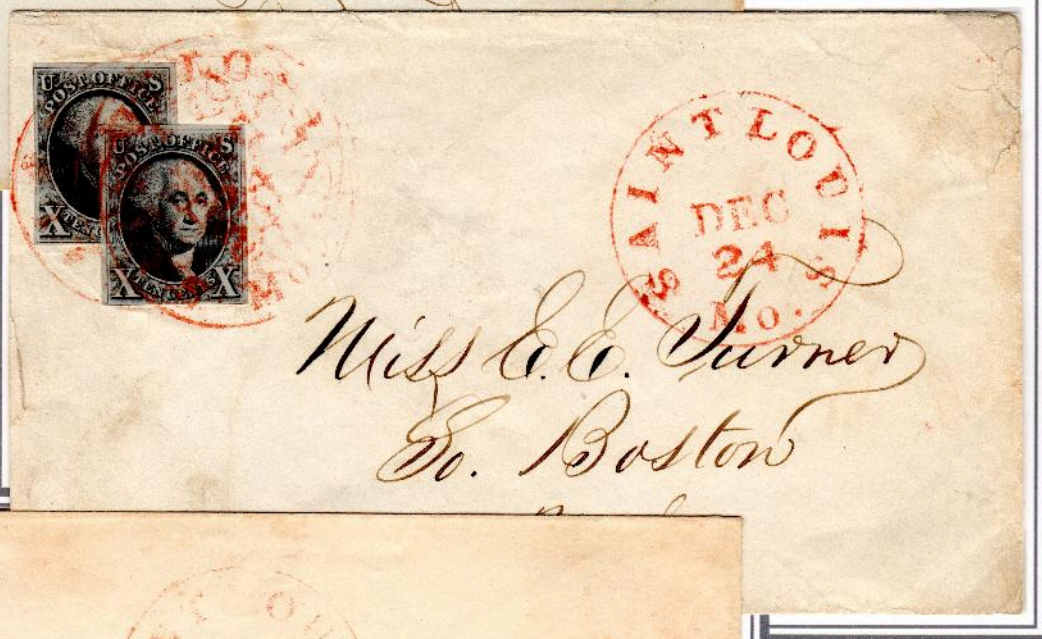 U S
POST OFFICE
X
U S
POST OFFICE
X TEN CENTS X
SAINT LOUIS
DEC
24
MO.
Miss E. E. Turner
So. Boston